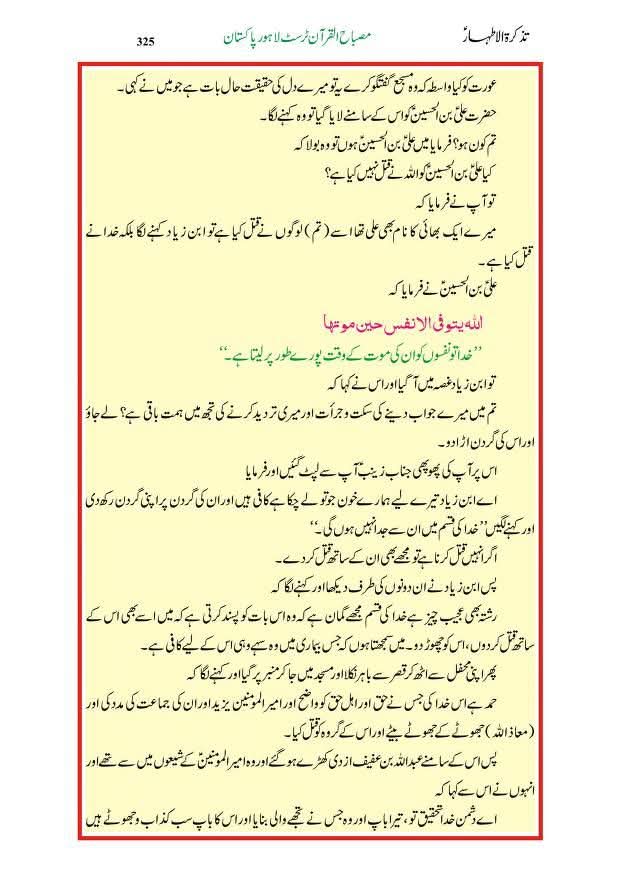 تذکرۃ الاطہارؑ
مصباح القرآن ٹرسٹ لاہور پاکستان
325
عورت کو کیا واسطہ کہ وہ مسجع گفتگو کرے یہ تو میرے دل کی حقیقت حال بات ہے جو میں نے کہی۔
حضرت علیؑ بن الحسینؑ کو اس کے سامنے لایا گیا تو وہ کہنے لگا۔
تم کون ہو؟ فرمایا میں علیؑ بن الحسینؑ ہوں تو وہ بولا کہ
کیا علیؑ بن الحسینؑ کو اللہ نے قتل نہیں کیا ہے؟
تو آپ نے فرمایا کہ
میرے ایک بھائی کا نام بھی علی تھا اسے (تم) لوگوں نے قتل کیا ہے تو ابن زیاد کہنے لگا بلکہ خدا نے
قتل کیا ہے۔
علیؑ بن الحسینؑ نے فرمایا کہ
اللہ یتوفی الانفس حین موتھا
’’خدا تو نفسوں کو ان کی موت کے وقت پورے طور پر لیتا ہے۔‘‘
تو ابن زیاد غصہ میں آ گیا اور اس نے کہا کہ
تم میں میرے جواب دینے کی سکت و جرأت اور میری تردید کرنے کی تجھ میں ہمت باقی ہے؟ لے جاؤ
اور اس کی گردن اڑا دو۔
اس پر آپ کی پھوپھی جناب زینبؑ آپ سے لپٹ گئیں اور فرمایا
اے ابن زیاد تیرے لیے ہمارے خون جو تو لے چکا ہے کافی ہیں اور ان کی گردن پر اپنی گردن رکھ دی
اور کہنے لگیں ’’خدا کی قسم میں ان سے جدا نہیں ہوں گی۔‘‘
اگر انہیں قتل کرنا ہے تو مجھے بھی ان کے ساتھ قتل کر دے۔
پس ابن زیاد نے ان دونوں کی طرف دیکھا اور کہنے لگا کہ
رشتہ بھی عجیب چیز ہے خدا کی قسم مجھے گمان ہے کہ وہ اس بات کو پسند کرتی ہے کہ میں اسے بھی اس کے
ساتھ قتل کر دوں، اس کو چھوڑ دو۔ میں سمجھتا ہوں کہ جس بیماری میں وہ ہے وہی اس کے لیے کافی ہے۔
پھر اپنی محفل سے اٹھ کر قصر سے باہر نکلا اور مسجد میں جا کر منبر پر گیا اور کہنے لگا کہ
حمد ہے اس خدا کی جس نے حق اور اہل حق کو واضح اور امیر المومنین یزید اور ان کی جماعت کی مدد کی اور
(معاذ اللہ) جھوٹے کے جھوٹے بیٹے اور اس کے گروہ کو قتل کیا۔
پس اس کے سامنے عبداللہ بن عفیف ازدی کھڑے ہو گئے اور وہ امیر المؤمنینؑ کے شیعوں میں سے تھے اور
انہوں نے اس سے کہا کہ
اے دشمن خدا تحقیق تو، تیرا باپ اور وہ جس نے تجھے والی بنایا اور اس کا باپ سب کذاب و جھوٹے ہیں